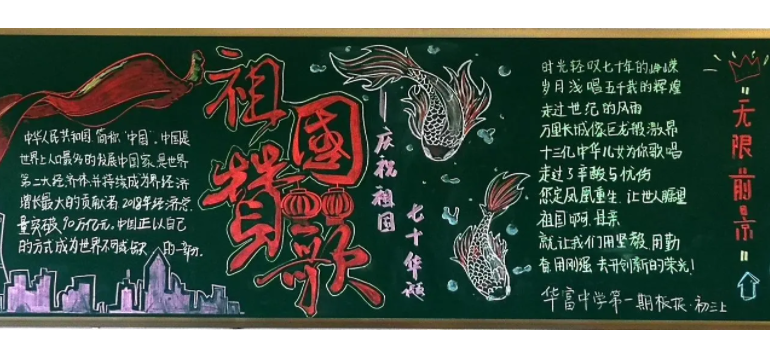 中华人民共和国,简称"中国",中国是
世界上人口最多的发展中国家,是世界
第二大经济体,并持续成为世界经济
增长最大的贡献者,2018年经济总
量突破90万亿元,中国正以自己
的方式成为世界不可或缺的一部分。
祖国
赞歌
—庆祝祖国
七十华诞
时光轻叹七十年的峥嵘
岁月浅唱五千载的辉煌
走过世纪的风雨
万里长城像巨龙般激昂
十三亿中华儿女为你歌唱
走过了辛酸与忧伤
您定凤凰重生,让世人瞩望
祖国啊,母亲
就让我们用坚毅,用勤
奋用刚强,去开创新的荣光!
"无限前景"
华富中学第一期板报·初三上